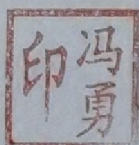 冯勇
印